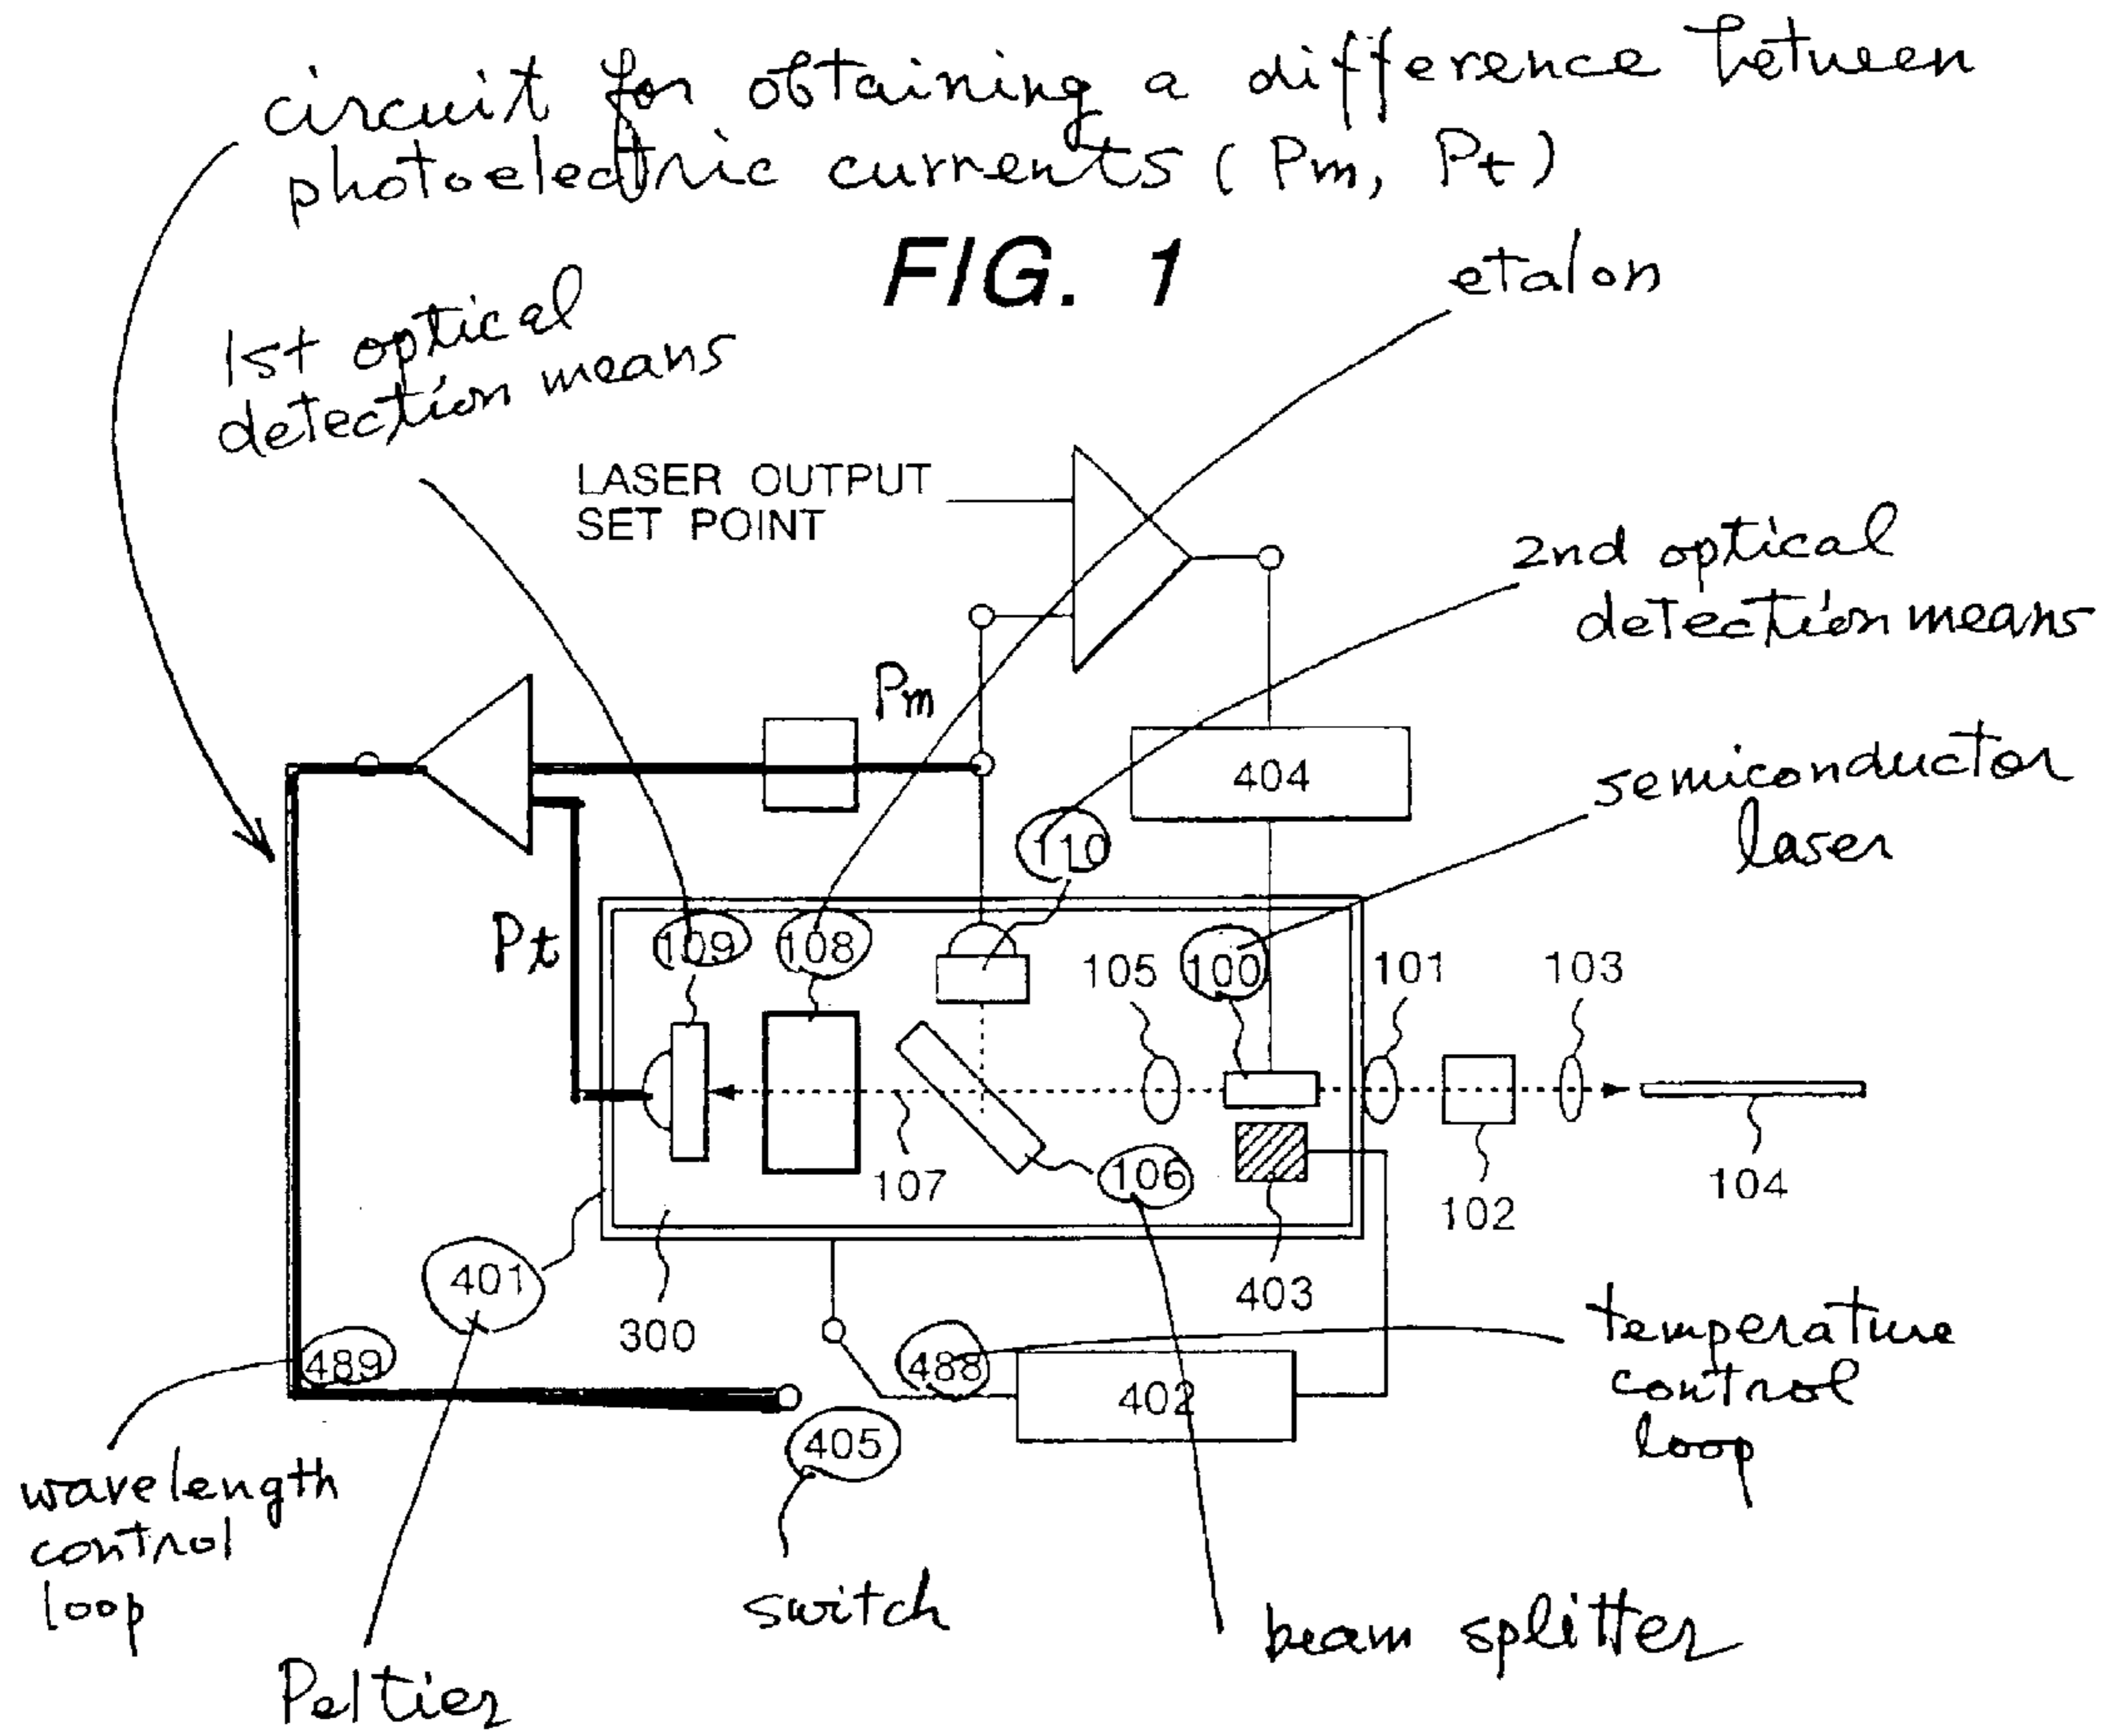 circuit for obtaining a difference between
photoelectric currents (Pm, Pt)
FIG. 1
etalon
1st optical
detection means
LASER OUTPUT
SET POINT
2nd optical
detection means
Pm
404
semiconductor
laser
110
Pt
109
108
105
100
101
103
107
106
102
104
401
300
403
489
488
402
temperature
control
loop
405
wavelength
control
loop
switch
beam splitter
Peltier